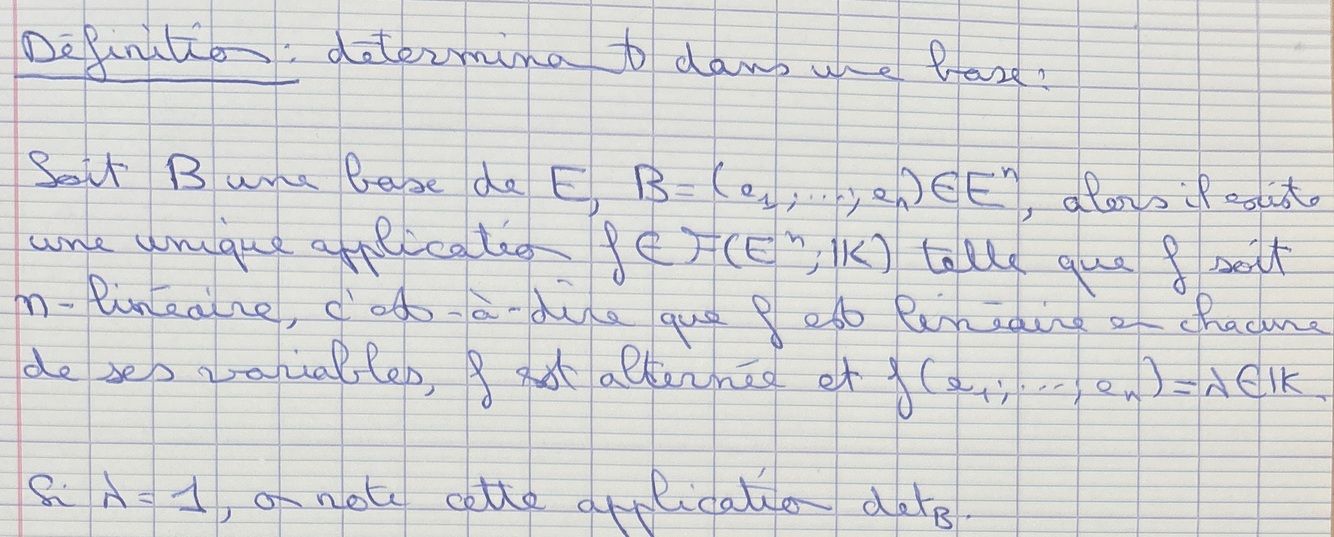 Définition : déterminant dans une base :
Soit B une base de E, B = (e₁, ..., eₙ) ∈ Eⁿ, alors il existe
une unique application f ∈ F(Eⁿ, K) telle que f soit
n-linéaire, c'est-à-dire que f est linéaire en chacune
de ses variables, f est alternée et f(e₁, ..., eₙ) = λ ∈ K.
Si λ = 1, on note cette application det_B.